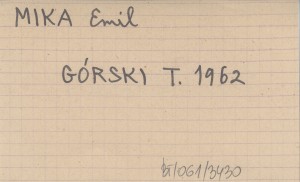 MIKA Emil
GÓRSKI T. 1962
/061/3430